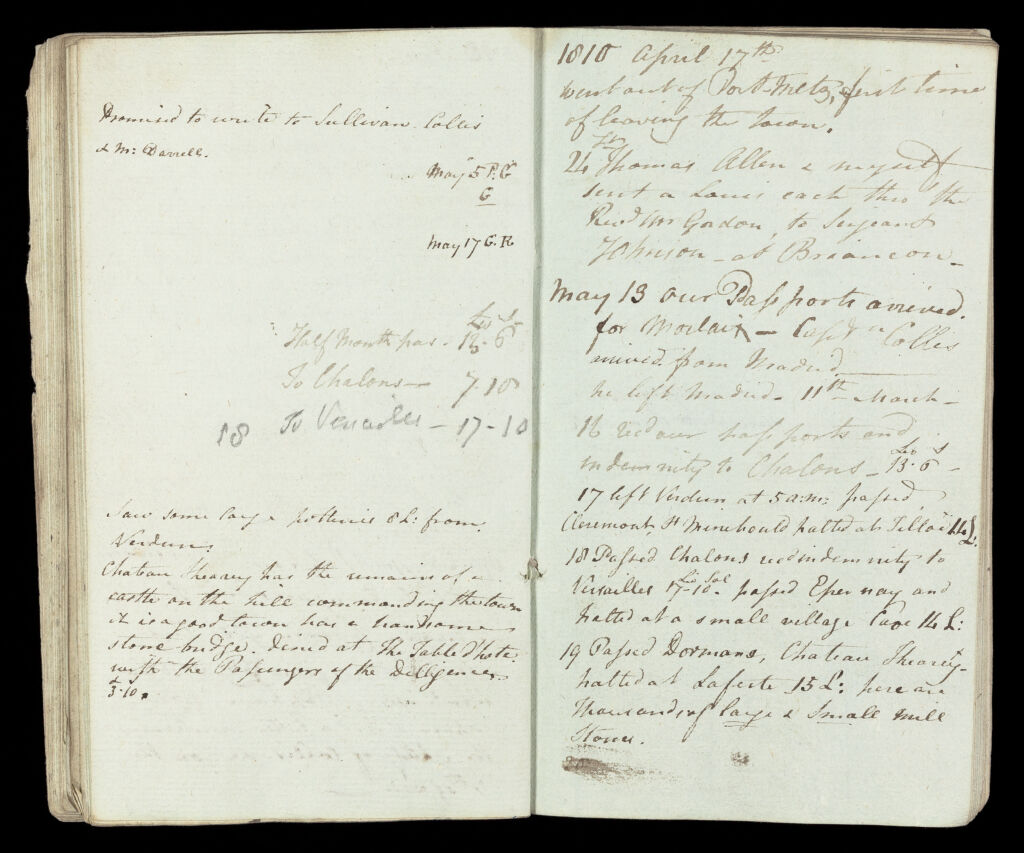 Promised to write to Sullivan Collis
& Mr: Darrell.
May 5 P.G
G
May 17 G.R
Liv S
Half Month pay - 13 - 6
To Chalons — 7 10
18 To Versailles - 17 - 10
Saw some large potteries 8 L: from
Verdun.
Chateau Thearey has the remains of a
castle on the hill commanding the town
it is a good town has a handsome
stone bridge. dined at the Table D'hote
with the Passengers of the Dilligence
3.10.
1810 April 17th
went out of Port Metz, first time
of leaving the Town.
24th Thomas Allen & myself
sent a Louis each thro' the
Revd Mr Gordon, to Serjeant
Johnson - at Briancon -
May 13 our Passports arrived.
for Morlaix - Captn Collis
arrived from Madrid
he left Madrid - 11th March -
16 recd our passports and
indemnity to Chalons - Liv 13 S 6 -
17 left Verdun at 5 a:m: passed
Claremont, St Minehould halted at 14 L:
18 Passed Chalons recd indemnity to
Versailles Liv 17 - Sol 10 - passed Epernay and
halted at a small village 14 L:
19 Passed Dormans, Chateau Thearey -
halted at Laferte 15 L: here are
Thousands of large & Small mill
Stones.